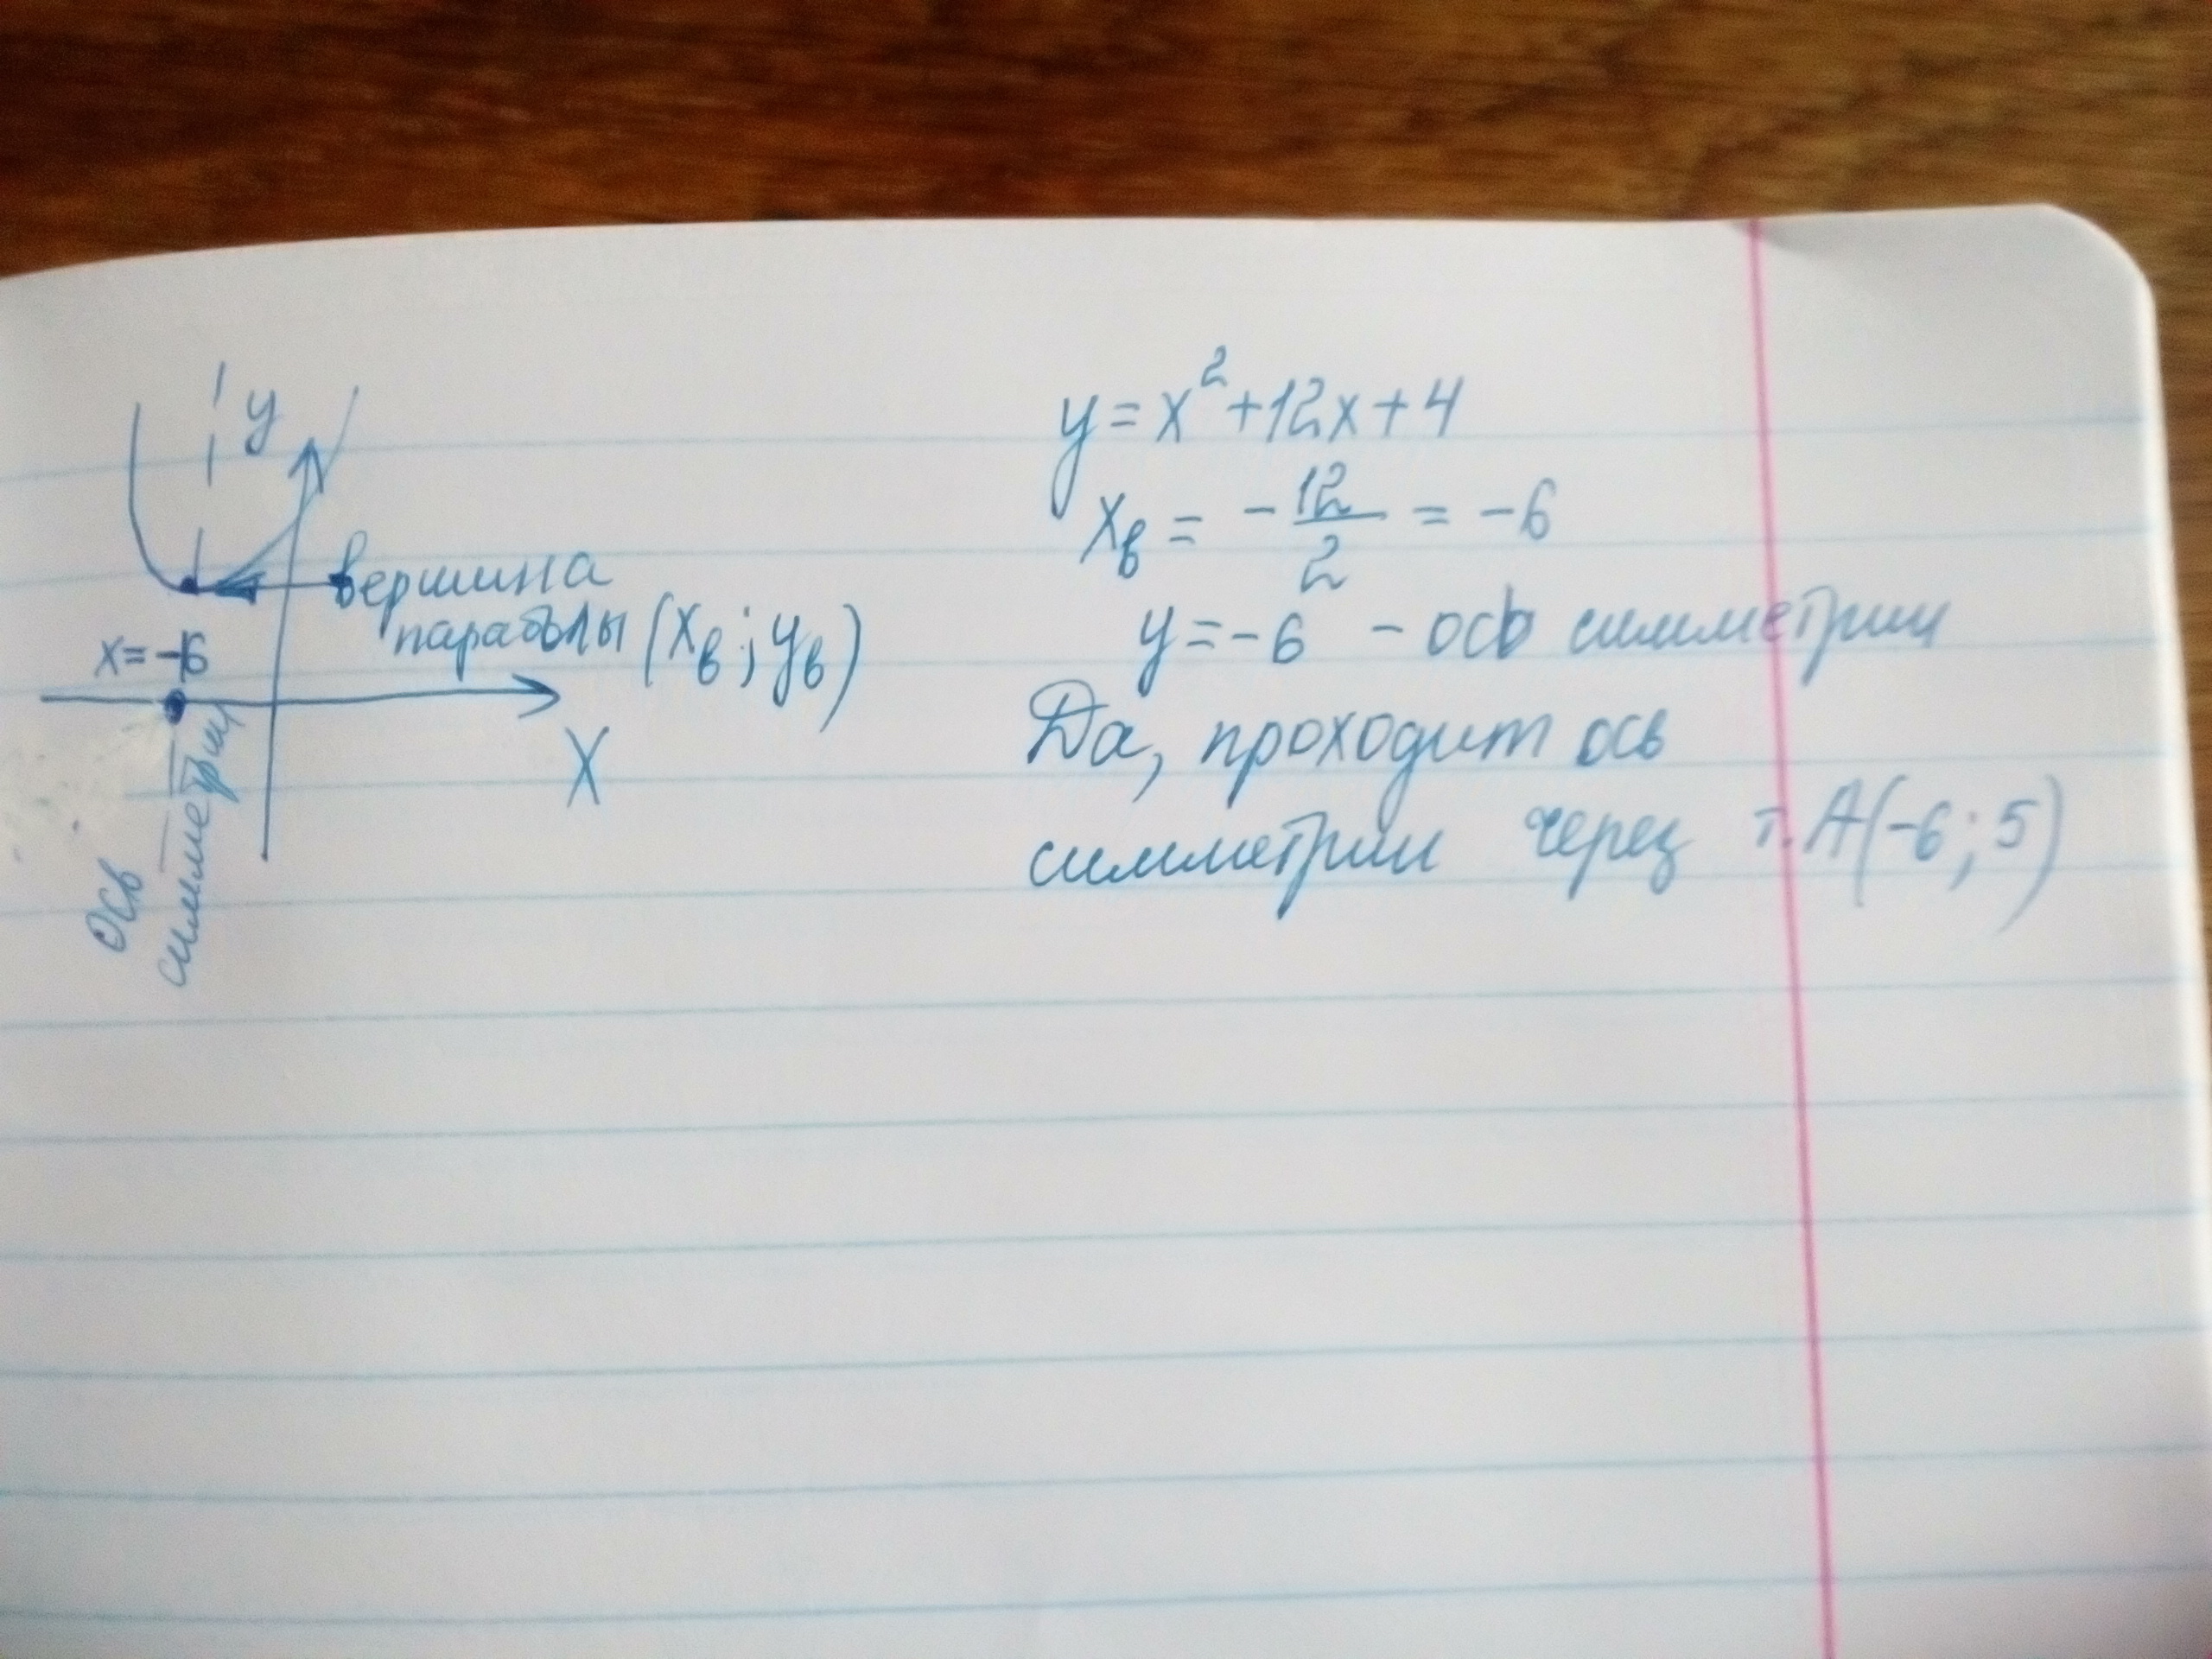 y
вершина
параболы (xв; yв)
x = -6
X
Ось
симметрии
y = x² + 12x + 4
xв = - 12/2 = -6
y = -6 - ось симметрии
Да, проходит ось
симметрии через т. A(-6; 5)